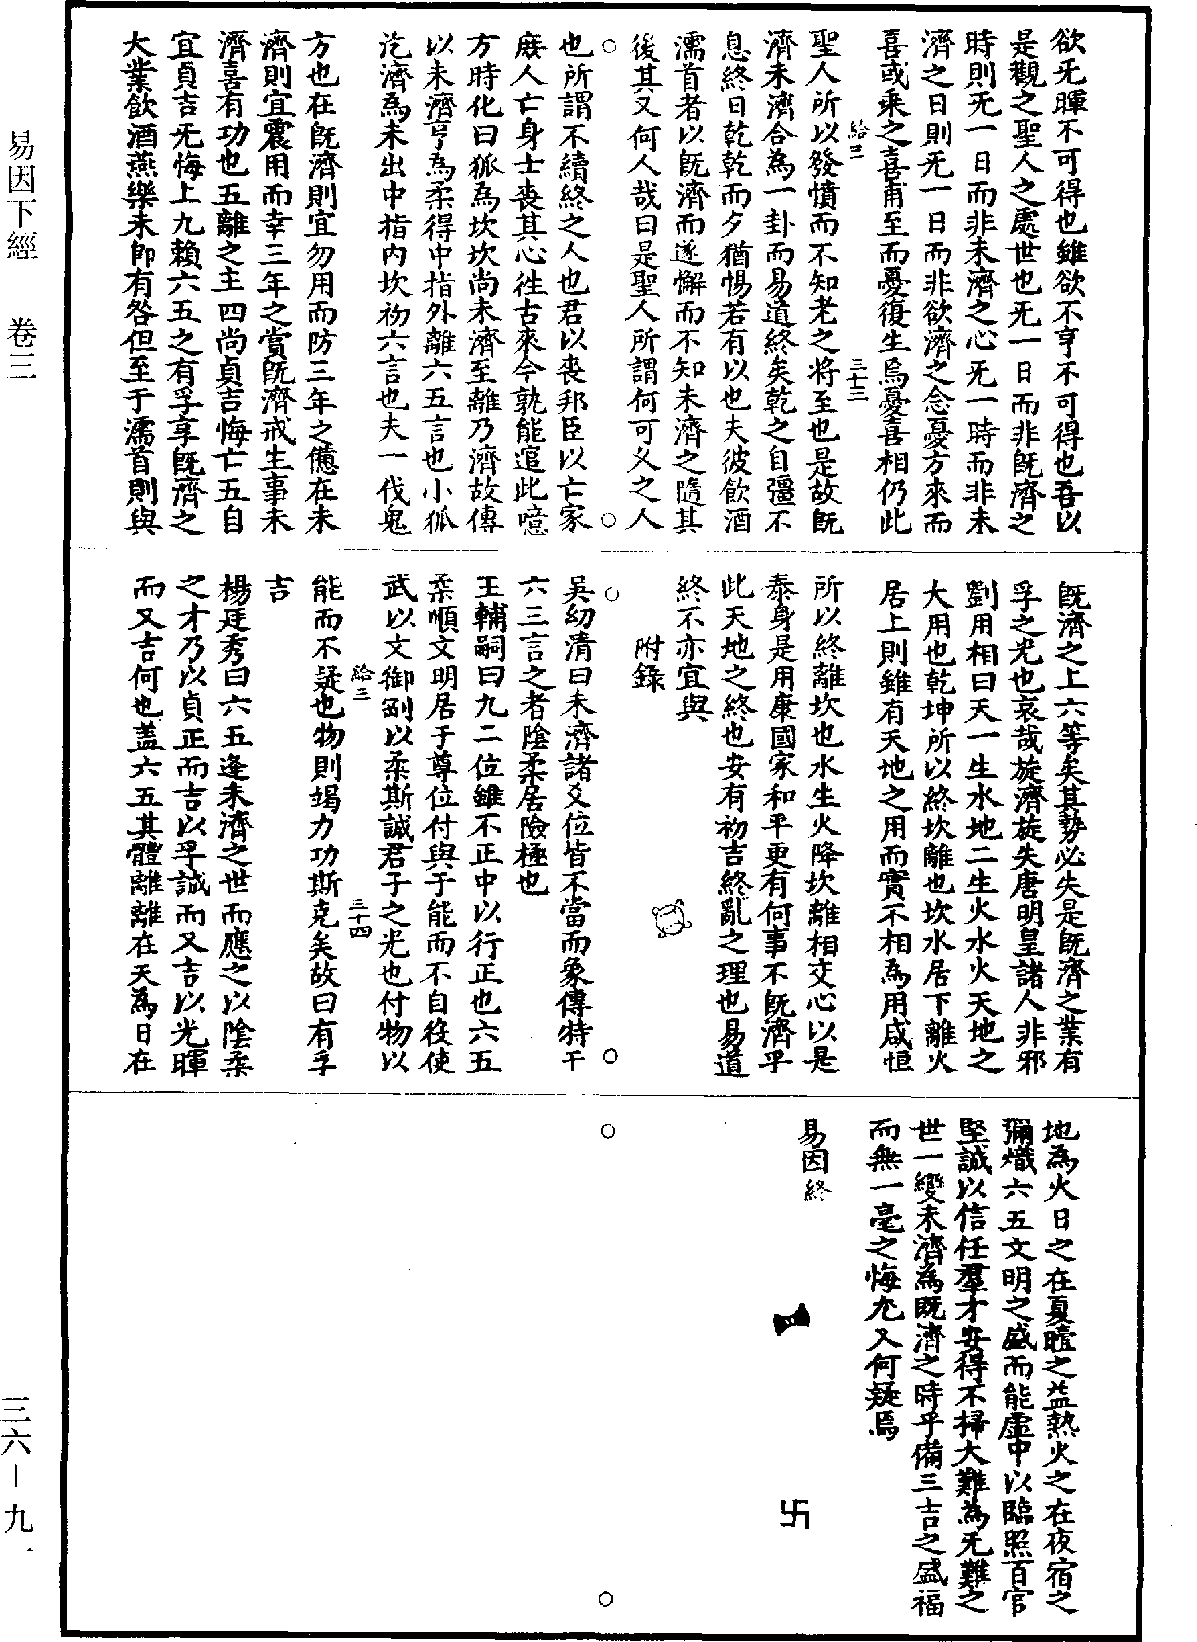 欲无暉不可得也雖欲不亨不可得也吾以
是觀之聖人之處世也无一日而非既濟之
時則无一日而非未濟之心无一時而非未
濟之日則无一日而非欲濟之念憂方來而
喜或乘之喜甫至而憂復生焉憂喜相仍此
給三 三十三
聖人所以發憤而不知老之將至也是故既
濟未濟合為一卦而易道終矣乾之自彊不
息終日乾乾而夕猶惕若有以也夫彼飲酒
濡首者以既濟而遂懈而不知未濟之隨其
後其又何人哉曰是聖人所謂何可久之人
也所謂不續終之人也君以喪邦臣以亡家
庶人亡身士喪其心徃古來今孰能逭此噫
方時化曰狐為坎坎尚未濟至離乃濟故傳
以未濟亨為柔得中指外離六五言也小狐
汔濟為未出中指內坎初六言也夫一伐鬼
方也在既濟則宜勿用而防三年之憊在未
濟則宜震用而幸三年之賞既濟戒生事未
濟喜有功也五離之主四尚貞吉悔亡五自
宜貞吉无悔上九賴六五之有孚享既濟之
大業飲酒燕樂未即有咎但至于濡首則與
既濟之上六等矣其勢必失是既濟之業有
孚之光也哀哉旋濟旋失唐明皇諸人非邪
劉用相曰天一生水地二生火水火天地之
大用也乾坤所以終坎離也坎水居下離火
居上則雖有天地之用而實不相為用咸恒
所以終離坎也水生火降坎離相交心以是
泰身是用康國家和平更有何事不既濟乎
此天地之終也安有初吉終亂之理也易道
終不亦宜與
附錄
吳幼清曰未濟諸爻位皆不當而象傳特于
六三言之者陰柔居險極也
王輔嗣曰九二位雖不正中以行正也六五
柔順文明居于尊位付與于能而不自役使
武以文御剛以柔斯誠君子之光也付物以
給三 三十四
能而不疑也物則竭力功斯克矣故曰有孚
吉
楊廷秀曰六五逢未濟之世而應之以陰柔
之才乃以貞正而吉以孚誠而又吉以光暉
而又吉何也蓋六五其體離離在天為日在
地為火日之在夏曀之益熱火之在夜宿之
彌熾六五文明之盛而能虛中以臨照百官
堅誠以信任羣才安得不掃大難為无難之
世一變未濟為既濟之時乎備三吉之盛福
而無一毫之悔尤又何疑焉
易因終
卍
易因下經 卷三
三六－九